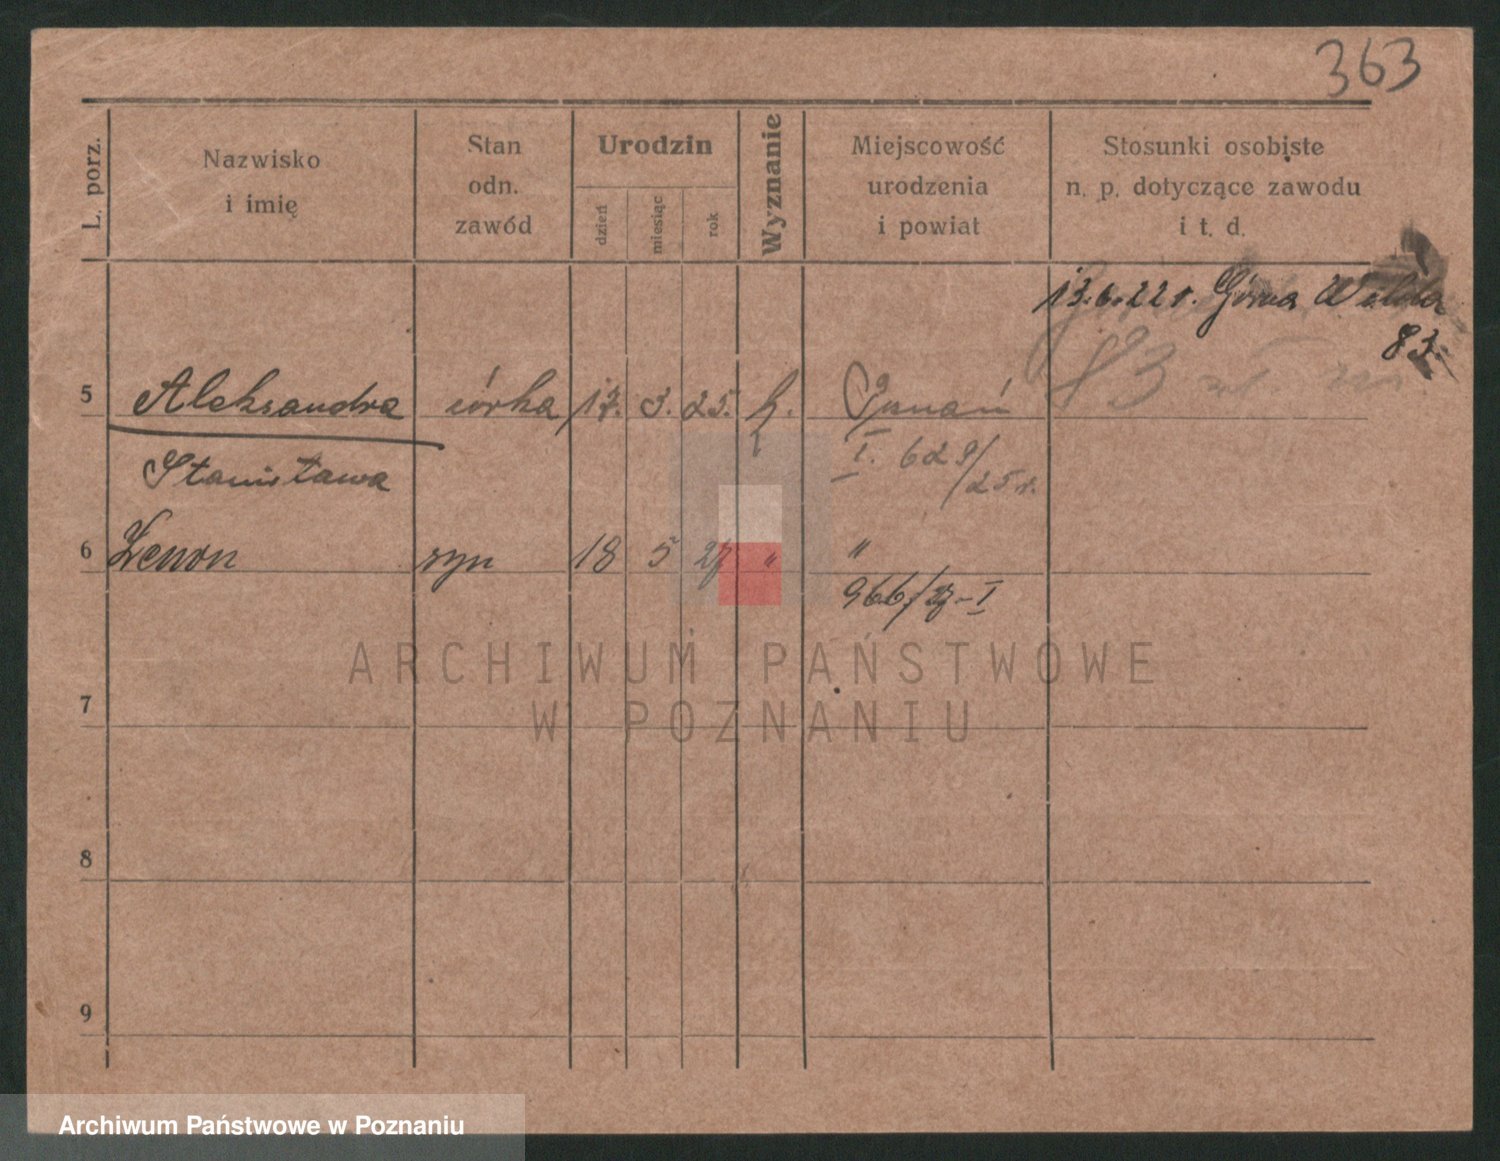 363
L. porz.
Nazwisko
i imię
Stan
odn.
zawód
Urodzin
dzień
miesiąc
rok
Wyznanie
Miejscowość
urodzenia
i powiat
Stosunki osobiste
n. p. dotyczące zawodu
i t. d.
13.6.22 r. Górna Wilda
83.
83
5 Aleksandra córka 17. 3. 25. k. Poznań
Stanisława I. 629/25 r.
6 Zenon syn 18 5 27 " "
966/27-I
7
8
9
ARCHIWUM PAŃSTWOWE
W POZNANIU
Archiwum Państwowe w Poznaniu